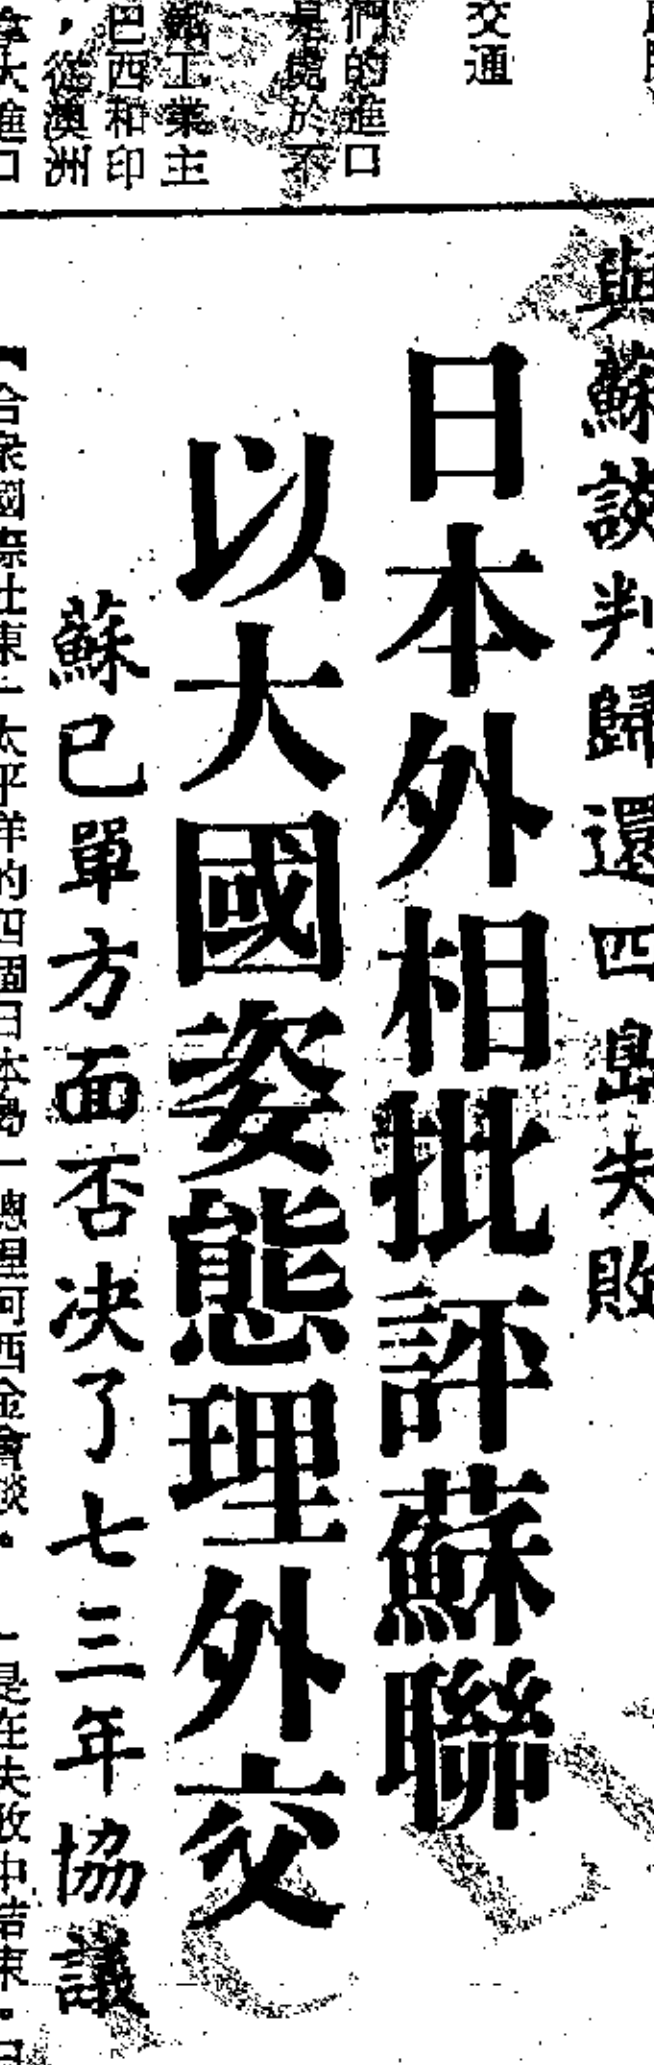 交通
們的進口
是處於不
鐵工業主
巴西和印
，從澳洲
拿大進口
與蘇談判歸還四島失敗
日本外相批評蘇聯
以大國姿態理外交
蘇已單方面否決了七三年協議
【合衆國際社東京
太平洋的四個日本島
總理柯西金會談。
是在失敗中結束。日